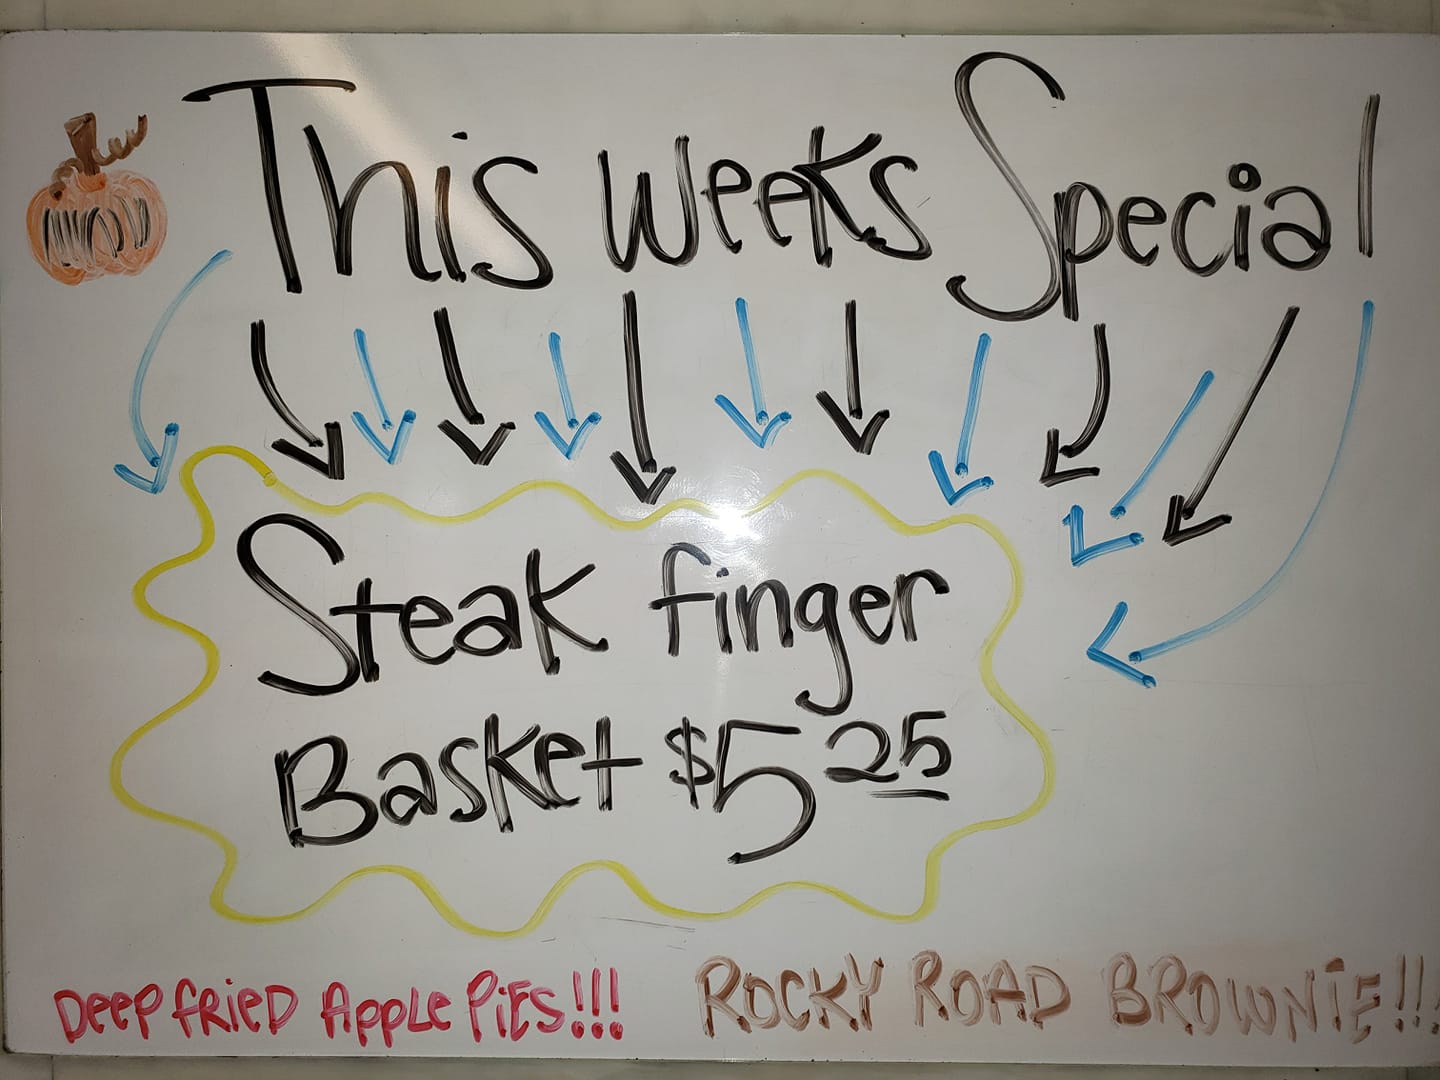 This weeks Special
Steak finger
Basket $5 25
DEEP FRIED APPLE PiES!!!
ROCKY ROAD BROWNiE!!!